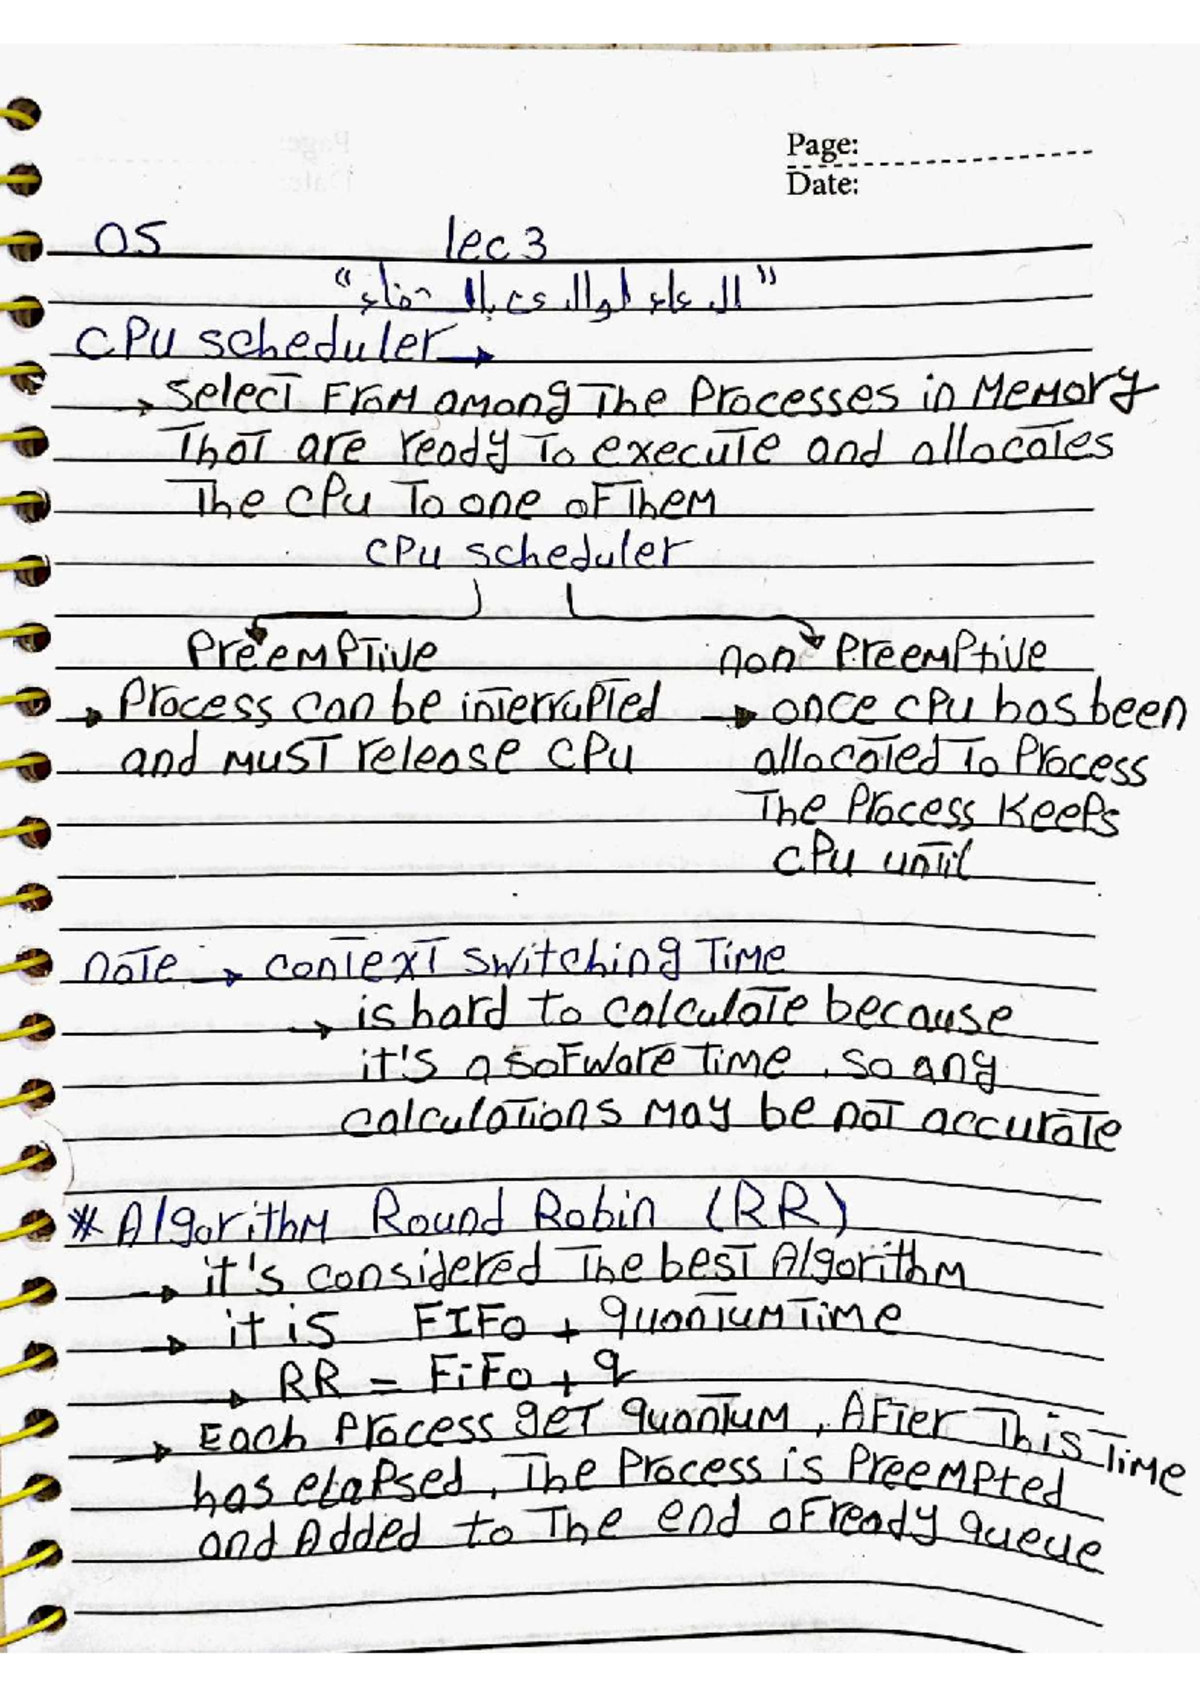 Page:
Date:
OS lec 3
CPU scheduler →
→ select From among The Processes in Memory
That are ready To execute and allocates
The CPU To one of Them
CPU scheduler
Preemptive non Preemptive
→ Process can be interrupted → once CPU has been
and must release CPU allocated To Process
The Process Keeps
CPU until
note → context switching Time
→ is hard to calculate because
it's a sofware time, so any
calculations may be not accurate
* Algorithm Round Robin (RR)
→ it's considered The best Algorithm
→ it is FIFO + quantum Time
→ RR = FiFo + q
→ Each Process get quantum, AFter This Time
has elapsed, The Process is Preempted
and Added to The end of ready queue